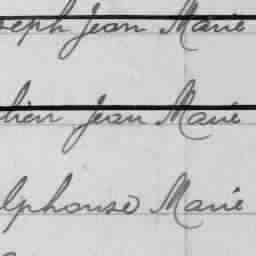 seph Jean Marie
lien Jean Marie
lphonse Marie